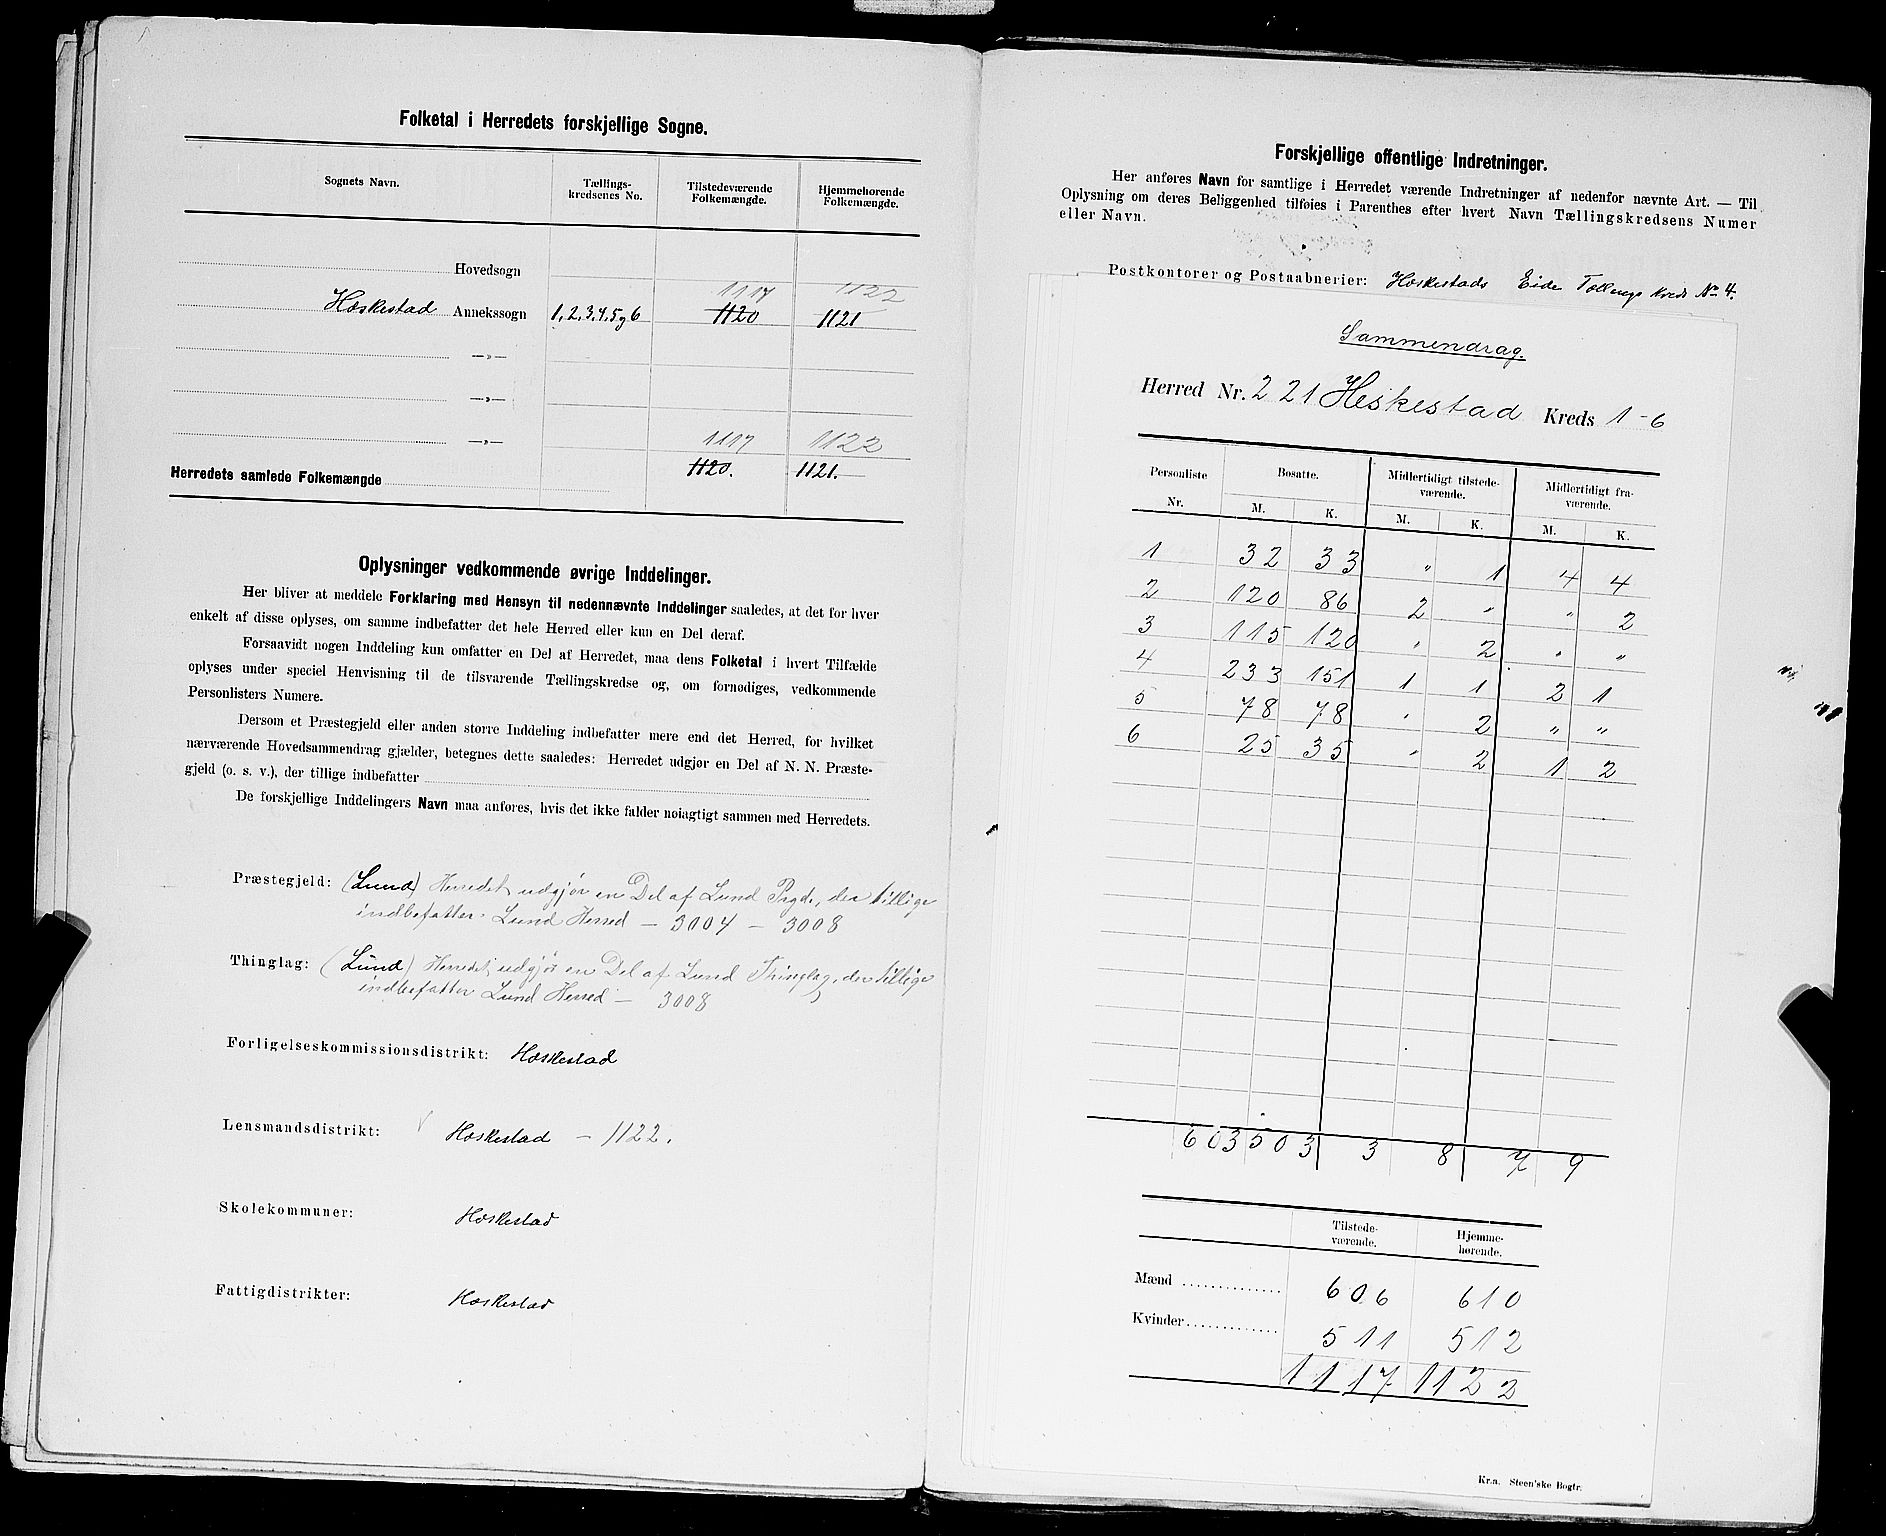 Folketal i Herredets forskjellige Sogne.
Sognets Navn. Tællings-kredsenes No. Tilstedeværende Folkemængde. Hjemmehørende Folkemængde.
Hovedsogn
1117 1122
Heskestad Annekssogn 1, 2, 3, 4, 5 og 6 1120 1121
—„—
—„—
—„— 1117 1122
Herredets samlede Folkemængde 1120. 1121.
Oplysninger vedkommende øvrige Inddelinger.
Her bliver at meddele Forklaring med Hensyn til nedennævnte Inddelinger saaledes, at det for hver
enkelt af disse oplyses, om samme indbefatter det hele Herred eller kun en Del deraf.
Forsaavidt nogen Inddeling kun omfatter en Del af Herredet, maa dens Folketal i hvert Tilfælde
oplyses under speciel Henvisning til de tilsvarende Tællingskredse og, om fornødiges, vedkommende
Personlisters Numere.
Dersom et Præstegjeld eller anden større Inddeling indbefatter mere end det Herred, for hvilket
nærværende Hovedsammendrag gjælder, betegnes dette saaledes: Herredet udgjør en Del af N. N. Præste-
gjeld (o. s. v.), der tillige indbefatter
De forskjellige Inddelingers Navn maa anføres, hvis det ikke falder nøiagtigt sammen med Herredets.
Præstegjeld: (Lund) Herredet udgjør en Del af Lund Prgd., der tillige
indbefatter Lund Herred — 3004 — 3008
Thinglag: (Lund) Herredet udgjør en Del af Lund Thinglag, der tillige
indbefatter Lund Herred — 3008
Forligelseskommissionsdistrikt: Heskestad
Lensmandsdistrikt: Heskestad — 1122.
Skolekommuner: Heskestad
Fattigdistrikter: Heskestad
Forskjellige offentlige Indretninger.
Her anføres Navn for samtlige i Herredet værende Indretninger af nedenfor nævnte Art. — Til
Oplysning om deres Beliggenhed tilføies i Parenthes efter hvert Navn Tællingskredsens Numer
eller Navn.
Postkontorer og Postaabnerier: Heskestads Eide Tællings Kreds No 4.
Sammendrag.
Herred Nr. 221 Heskestad Kreds 1-6
Personliste Nr. Bosatte. Midlertidigt tilstede-værende. Midlertidigt fra-værende.
M. K. M. K. M. K.
1 32 33 „ 1 4 4
2 120 86 2 „ „ 2
3 115 120 „ 2 „ „
4 233 151 1 1 2 1
5 78 78 „ 2 „ „
6 25 35 „ 2 1 2
603 503 3 8 7 9
Tilstede-værende. Hjemme-hørende.
Mænd 606 610
Kvinder 511 512
1117 1122
Kr.a. Steen'ske Bogtr.